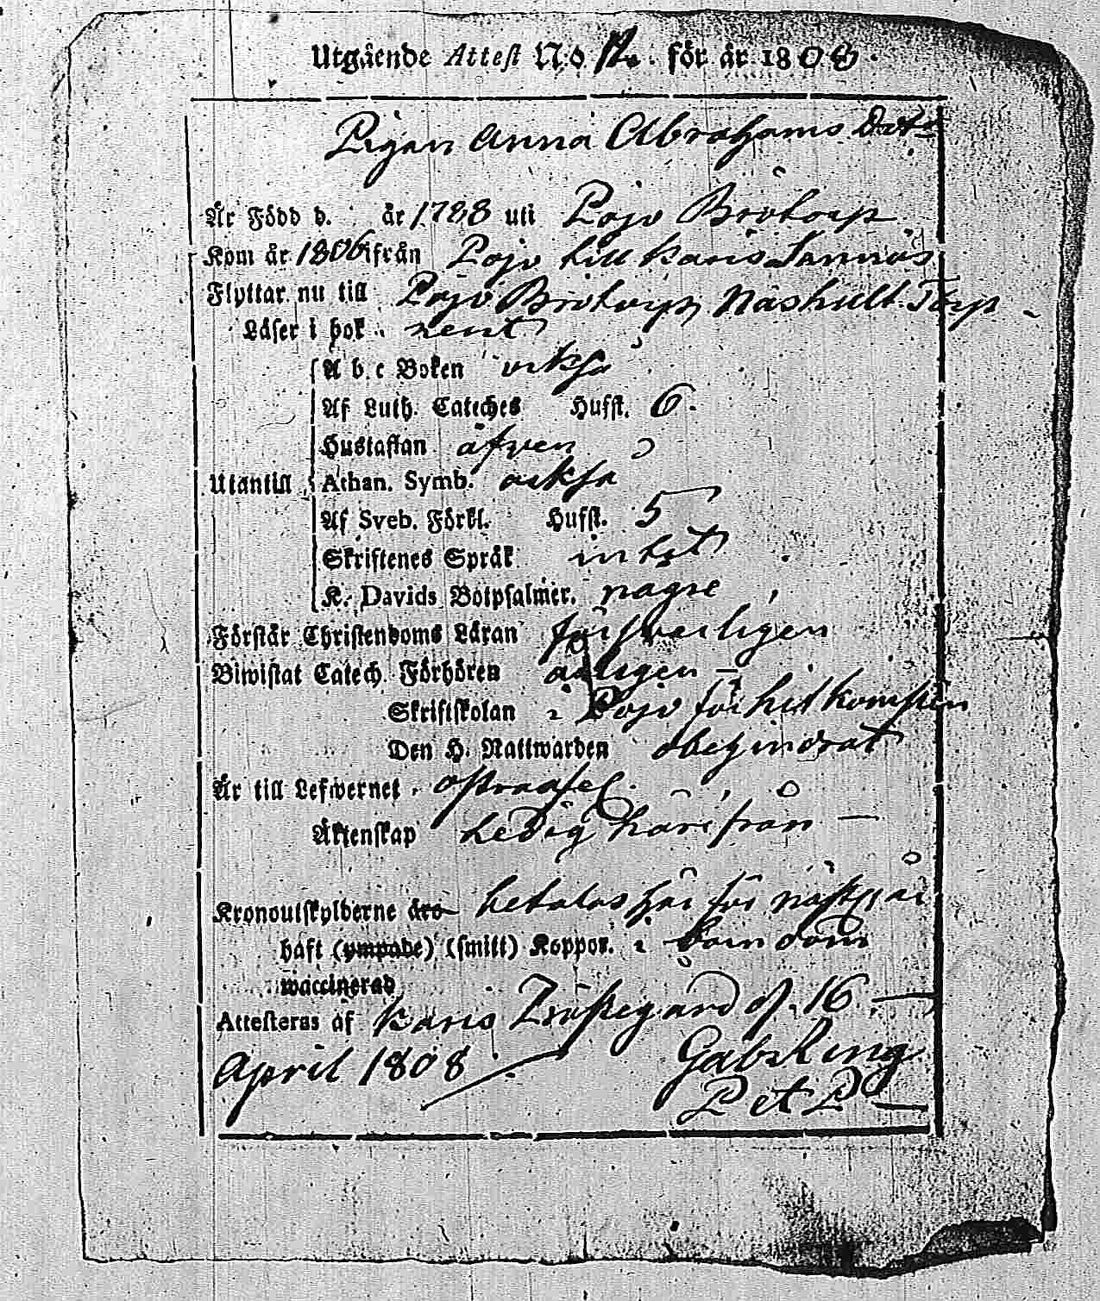 Utgående Attest No 12. för år 1808.
Pigan Anna Abrahams Dotr
Är Född d. år 1788 uti Pojo Brötorp
Kom år 1806 ifrån Pojo till Karis Sannäs
Flyttar nu till Pojo Brötorp Näshult Torp
Läser i bok. rent
A b. c Boken också
Af Luth. Cateches Hufst. 6.
Hustaflan äfven
Utantill Athan. Symb. också
Af Sveb. Förkl. Hufst. 5
Skriftenes Språk intet
K. Davids Botpsalmer. nagre
Förstår Christendoms Läran försvarligen
Biwistat Catech. Förhören årligen —
Skriftskolan i Pojo för hitkomsten
Den H. Nattwarden obehindrat
Är till Lefwernet ostraffel.
Äktenskap ledig härifrån —
Kronoutskylderne äro betalas här för nästa år
haft (ympade) (smitt) Koppor. i barndom
waccinerad
Attesteras af Karis Prästegård d. 16. —
April 1808. Gab. Ring
P et P —